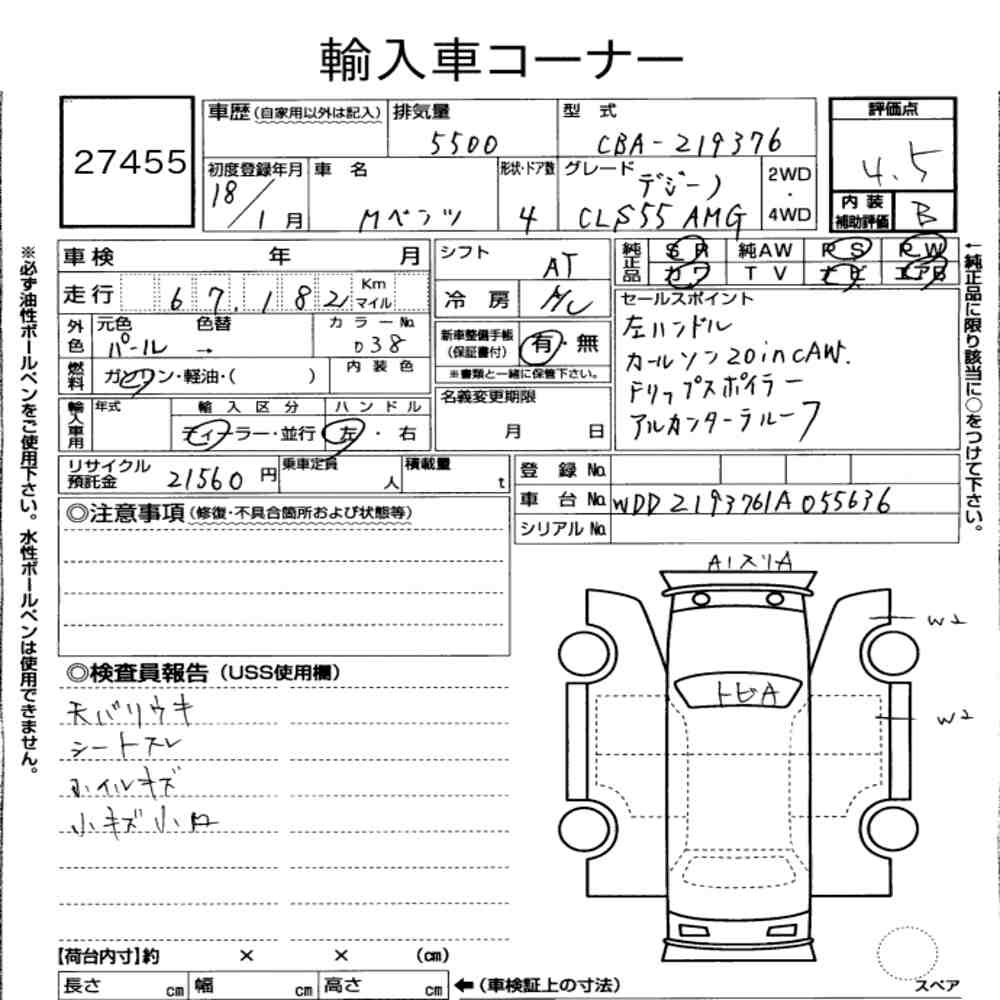 輸入車コーナー
27455
車歴(自家用以外は記入) 排気量 型 式 評価点
5500 CBA-219376 4.5
初度登録年月 車 名 形状・ドア数 グレード 2WD ・ 4WD
18/1月 Mベンツ 4 デジーノ CLS55 AMG
内装補助評価 B
車検 年 月 シフト AT 純正品 SR 純AW PS PW
カワ TV ナビ エアB
走行 67.182 Km マイル 冷 房 A/C
セールスポイント
外色 元色 色替 カラーNo.
パール → 038
新車整備手帳(保証書付) 有・無
※書類と一緒に保管下さい。
左ハンドル
カールソン20inCAW.
Fリップスポイラー
アルカンターラルーフ
燃料 ガソリン・軽油・( ) 内装色
名義変更期限
月 日
輸入車用 年式 輸入区分 ハンドル
ディーラー・並行 左・右
リサイクル預託金 21560円 乗車定員 人 積載量 t
登 録 No.
車 台 No. WDD2193761A055636
シリアルNo.
◎注意事項(修復・不具合箇所および状態等)
AノスリA
W2
トビA
W2
◎検査員報告(USS使用欄)
天バリウキ
シートスレ
ホイルキズ
小キズ小凹
【荷台内寸】約 × × (cm)
長さ cm 幅 cm 高さ cm ←(車検証上の寸法)
スペア
※必ず油性ボールペンをご使用下さい。水性ボールペンは使用できません。
←純正品に限り該当に○をつけて下さい。